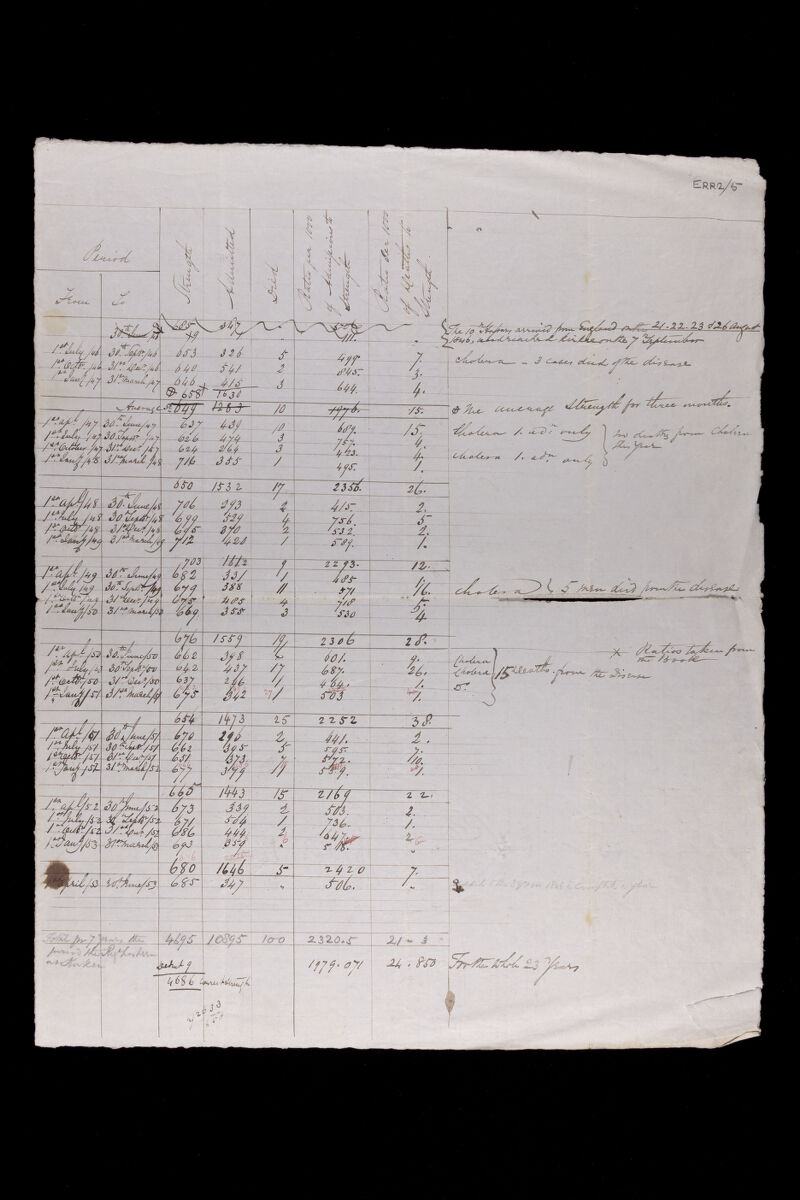 ERR2/5
Period
From To Strength Admitted Died Ratio per 1000 of Admissions to Strength Ratio per 1000 of Deaths to Strength
685 347
The 10th Hussars arrived from England on the 21-22-23 & 26 August
1846, and reached Kirkee on the 7th September
1st July /46 30th Septr /46 653 326 5 499. 7. Cholera - 3 cases died of the disease
1st Octr /46 31st Decr /46 640 541 2 845. 3.
1st Jany /47 31st March /47 646 415 3 644. 4.
658 1630
Average 649 1283 10 1976. 15. The average Strength for three months.
1st Apl /47 30th June /47 637 439 10 689. 15. Cholera 1. adn only
no deaths from Cholera this year
1st July /47 30th Septr /47 626 474 3 757. 4.
1st October /47 31st Decr /47 624 264 3 423. 4. Cholera 1. adn only
1st Jany /48 31st March /48 716 355 1 495. 1.
650 1532 17 2356. 26.
1st Apl /48 30th June /48 706 293 2 415. 2.
1st July /48 30th Septr /48 699 529 4 756. 5
1st Octr /48 31st Decr /48 695 370 2 532. 2.
1st Jany /49 31st March /49 712 420 1 589. 1.
703 1612 9 2293. 12.
1st Apl /49 30th June /49 682 331 1 485 1.
1st July /49 30th Septr /49 679 388 11 571 16. Cholera 5 men died from the disease
1st Octr /49 31st Decr /49 675 485 4 718 5.
1st Jany /50 31st March /50 669 355 3 530 4
676 1559 19 2306 28.
1st Apl /50 30th June /50 662 398 601. 9. Cholera
× Ratios taken from the Book
1st July /50 30th Septr /50 642 437 17 687. 26. Cholera 15 Deaths from the Disease
1st Octr /50 31st Decr /50 637 296 1 464. 1. Do
1st Jany /51 31st March /51 675 342 1 503 1.
654 1473 25 2252 38.
1st Apl /51 30th June /51 670 296 2 441. 2.
1st July /51 30th Septr /51 662 395 5 595. 7.
1st Octr /51 31st Decr /51 651 373 7 572. 10.
1st Jany /52 31st March /52 677 379 1 559. 1.
665 1443 15 2169 22.
1st Apl /52 30th June /52 673 339 2 503. 2.
1st July /52 30 Septr /52 671 504 1 736. 1.
1st Octr /52 31st Decr /52 686 444 2 647 2
1st Jany /53 31st March /53 693 359 " 518. "
680 1646 5 2420 7.
April /53 30th June /53 685 347 " 506. "
Total for 7 Years the 4695 10895 100 2320.5 21-3
period the Regt
at Kirkee
Deduct 9 1979.071 24.850 For the whole 23 Years
4686 Correct strength